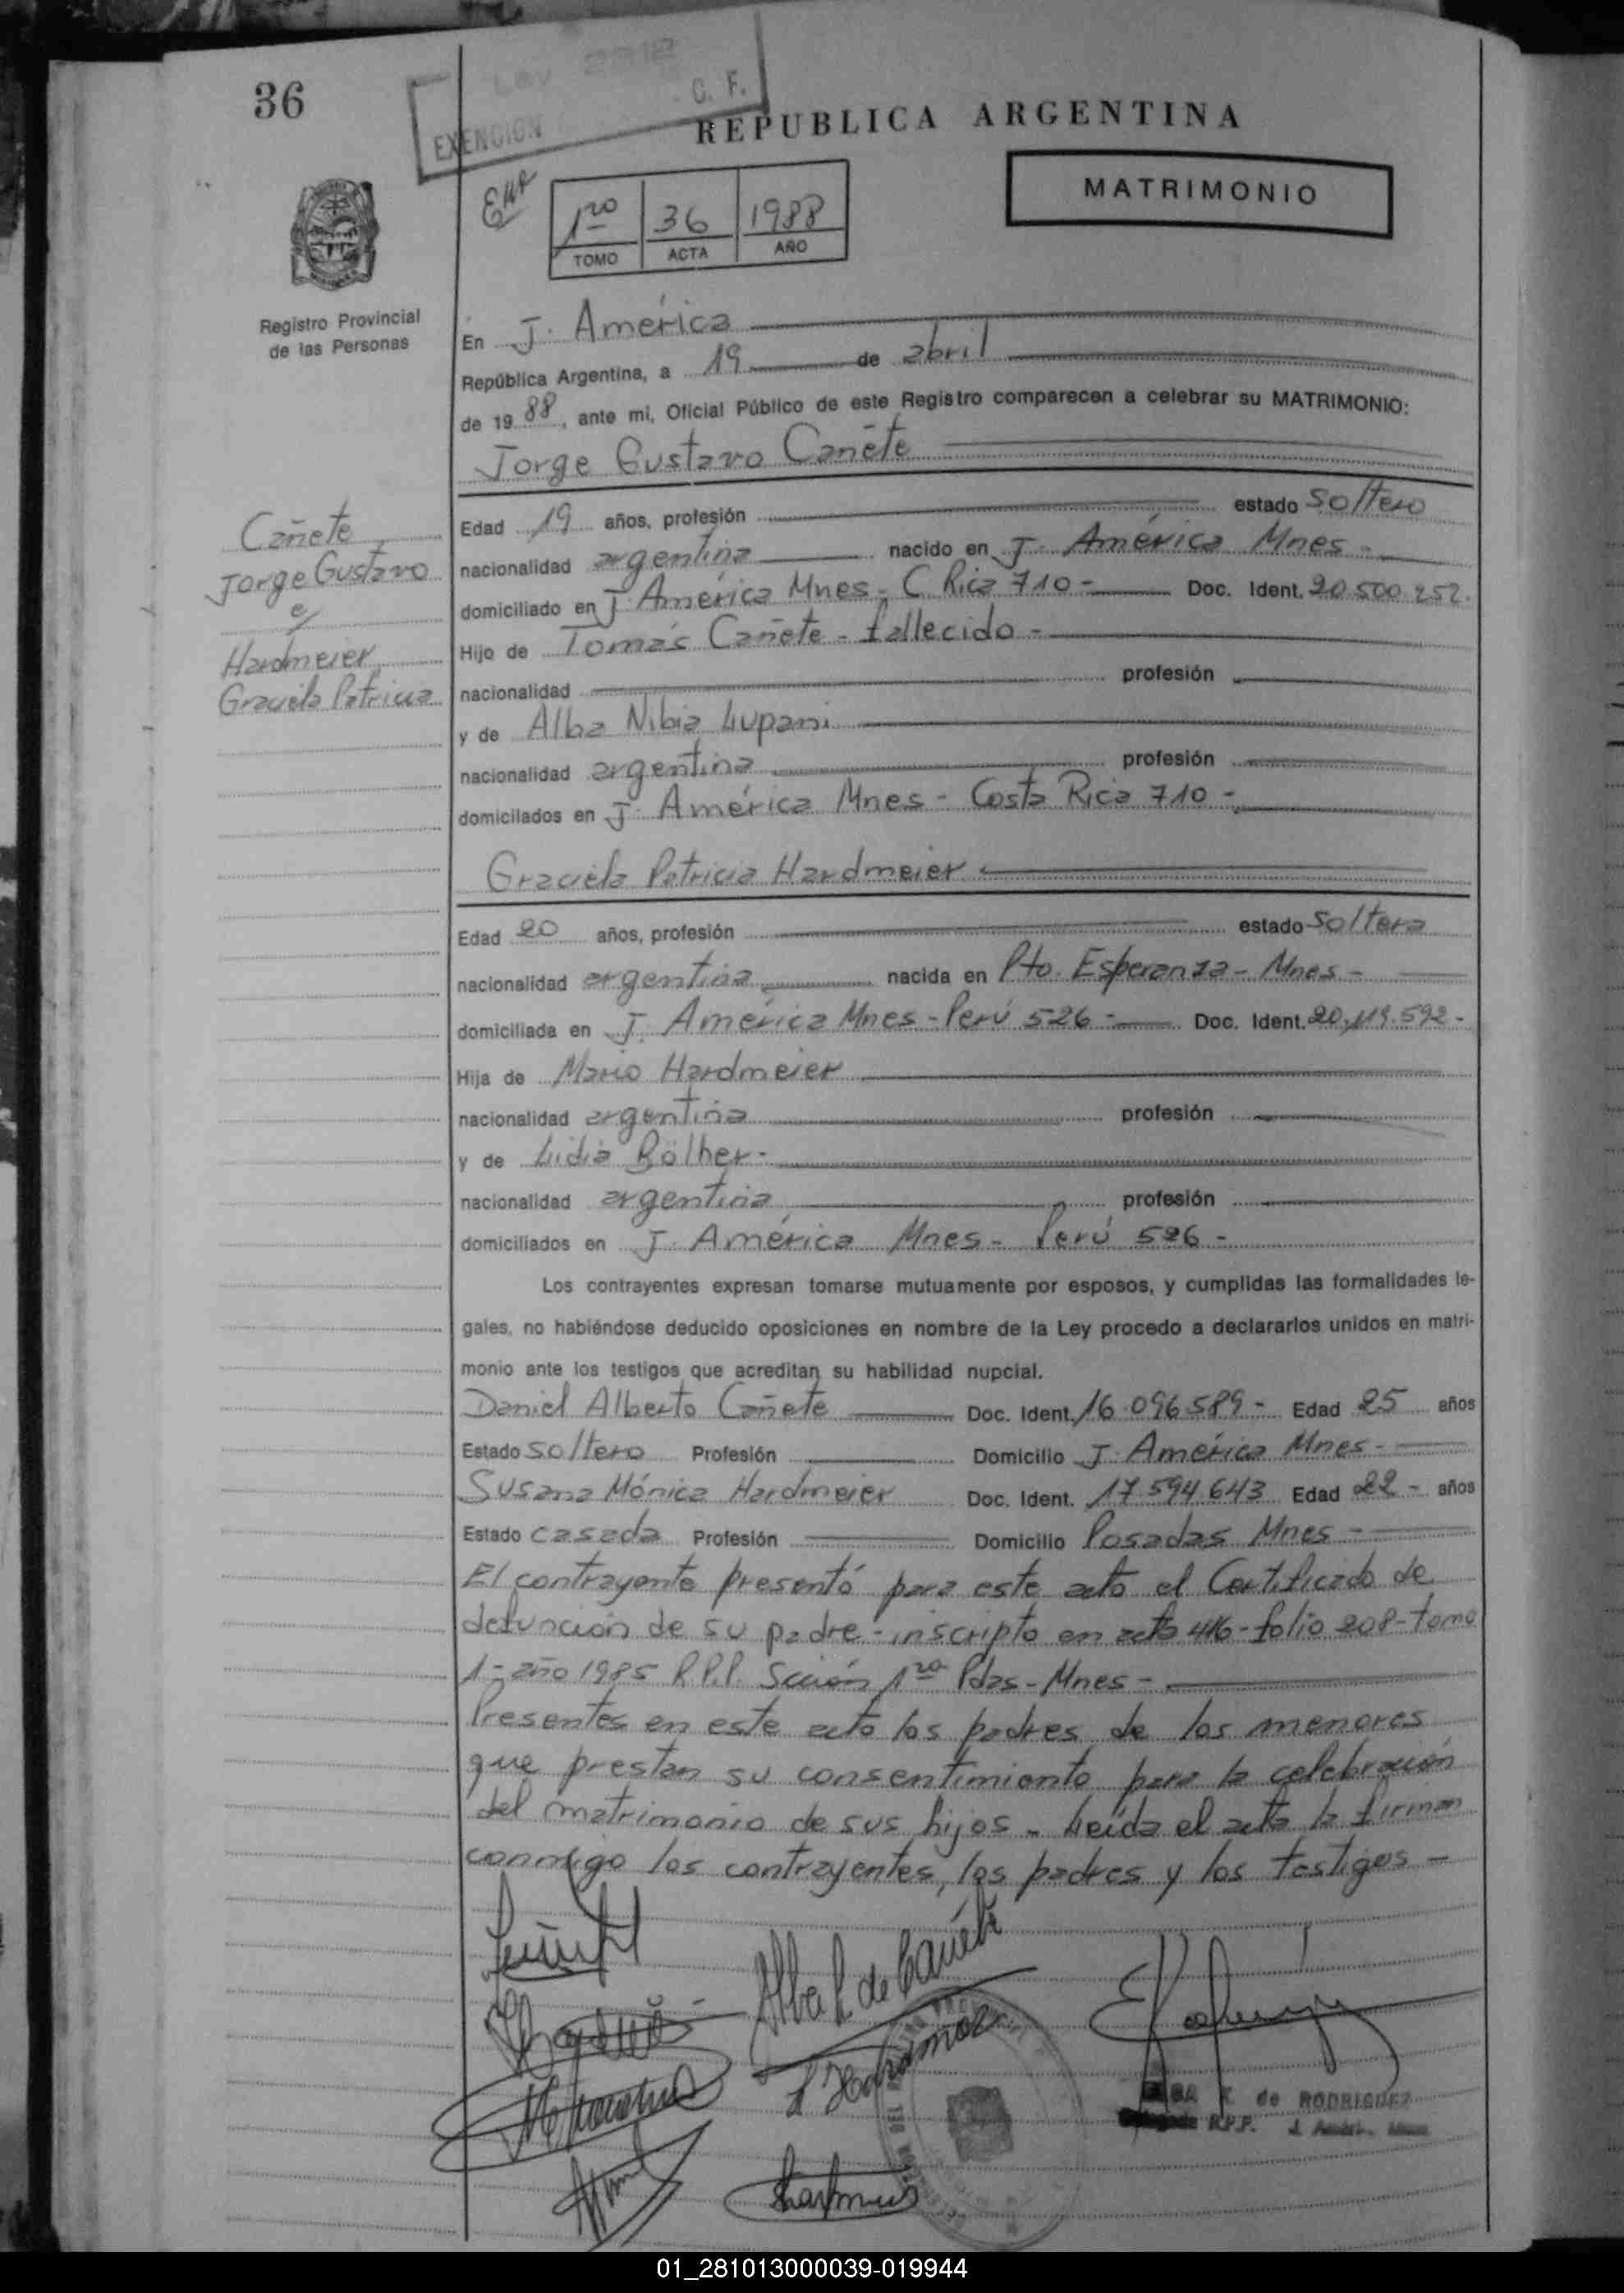 36
EXENCION
C. F.
REPUBLICA ARGENTINA
MATRIMONIO
1ro 36 1988
TOMO ACTA AÑO
Registro Provincial
de las Personas
En J. América
República Argentina, a 19 de abril
de 1988, ante mi, Oficial Público de este Registro comparecen a celebrar su MATRIMONIO:
Jorge Gustavo Cañete
Cañete
Jorge Gustavo
c/
Hardmeier
Graciela Patricia
Edad 19 años, profesión estado soltero
nacionalidad argentina nacido en J. América Mnes -
domiciliado en J. América Mnes - C. Rica 710 - Doc. Ident. 20.500.252.
Hijo de Tomás Cañete - fallecido -
nacionalidad profesión
y de Alba Nibia Lupani
nacionalidad argentina profesión
domicilados en J. América Mnes - Costa Rica 710 -
Graciela Patricia Hardmeier
Edad 20 años, profesión estado soltera
nacionalidad argentina nacida en Pto. Esperanza - Mnes -
domiciliada en J. América Mnes - Perú 526 - Doc. Ident. 20.119.592 -
Hija de Mario Hardmeier
nacionalidad argentina profesión
y de Lidia Bölher -
nacionalidad argentina profesión
domiciliados en J. América Mnes - Perú 526 -
Los contrayentes expresan tomarse mutuamente por esposos, y cumplidas las formalidades le-
gales, no habiéndose deducido oposiciones en nombre de la Ley procedo a declararlos unidos en matri-
monio ante los testigos que acreditan su habilidad nupcial.
Daniel Alberto Cañete Doc. Ident. 16.096.589 - Edad 25 años
Estado soltero Profesión Domicilio J. América Mnes -
Susana Mónica Hardmeier Doc. Ident. 17.594.643 Edad 22 - años
Estado casada Profesión Domicilio Posadas Mnes -
El contrayente presentó para este acto el Certificado de
defunción de su padre - inscripto en acta 416 - folio 208 - tomo
1 - año 1985 R.P.P. Sección 1ra Pdas - Mnes -
Presentes en este acto los padres de los menores
que prestan su consentimiento para la celebración
del matrimonio de sus hijos - Leída el acta la firman
conmigo los contrayentes, los padres y los testigos -
Alba L. de Cañete
de RODRIGUEZ
R.P.P.
01_281013000039-019944